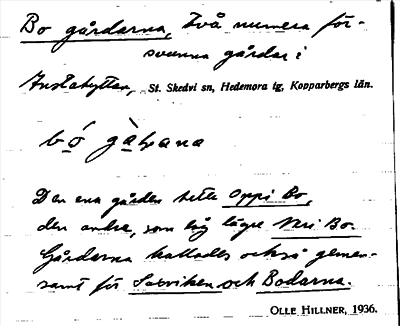 Bo gårdarna, två numera för-
svunna gårdar i
St. Skedvi sn, Hedemora tg, Kopparbergs län.
Den ena gården hette Oppi Bo,
den andra, som låg lägre Neri Bo.
Gårdarna kallades också gemen-
samt för och Bodarna.
OLLE HILLNER, 1936.